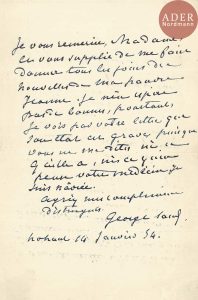 ADER
Nordmann
Je vous remercie, Madame,
et vous supplie de me faire
donner tous les jours des
nouvelles de ma pauvre
Jeanne. Je n'en ai pas
de bonnes, pourtant
Je vois par votre lettre que
son état est grave, puisque
vous ne me dites ni ce
qu'elle a, ni ce qu'en
pense votre médecin. Je
suis navrée.
Agréez mes compliments
distingués
George Sand
Nohant 14 Janvier 54.